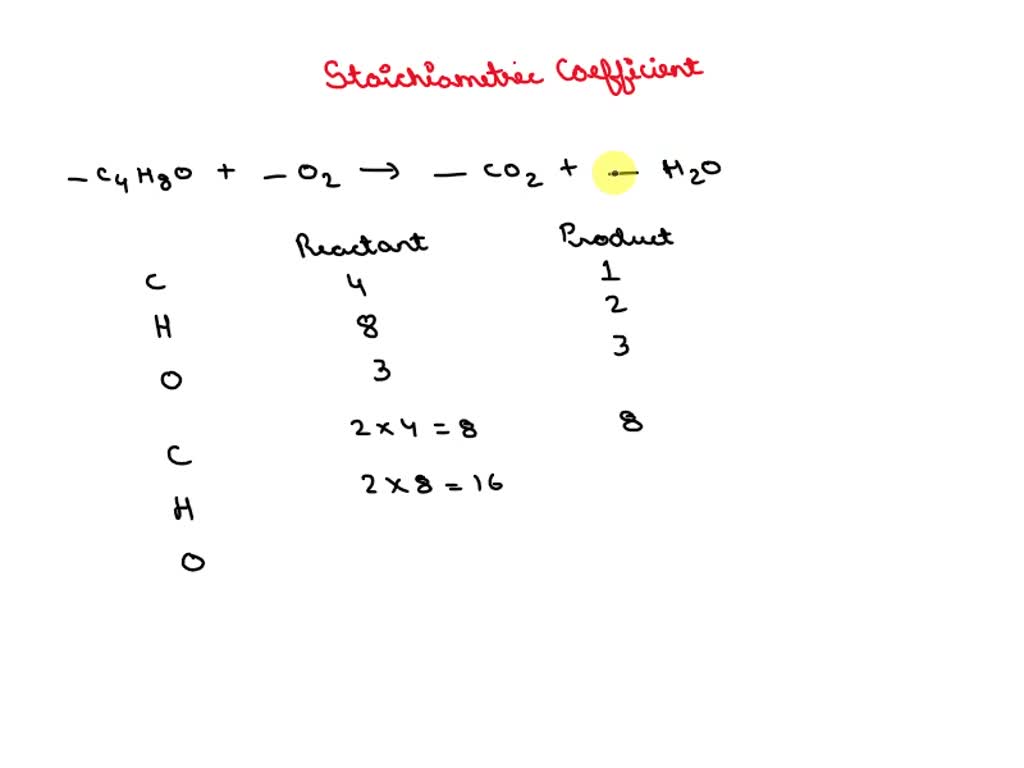 Stoichiometric Coefficient
— C4H8O + — O2 → — CO2 + — H2O
Reactant Product
C 4 1
H 8 2
O 3 3
C 2 x 4 = 8 8
H 2 x 8 = 16
O